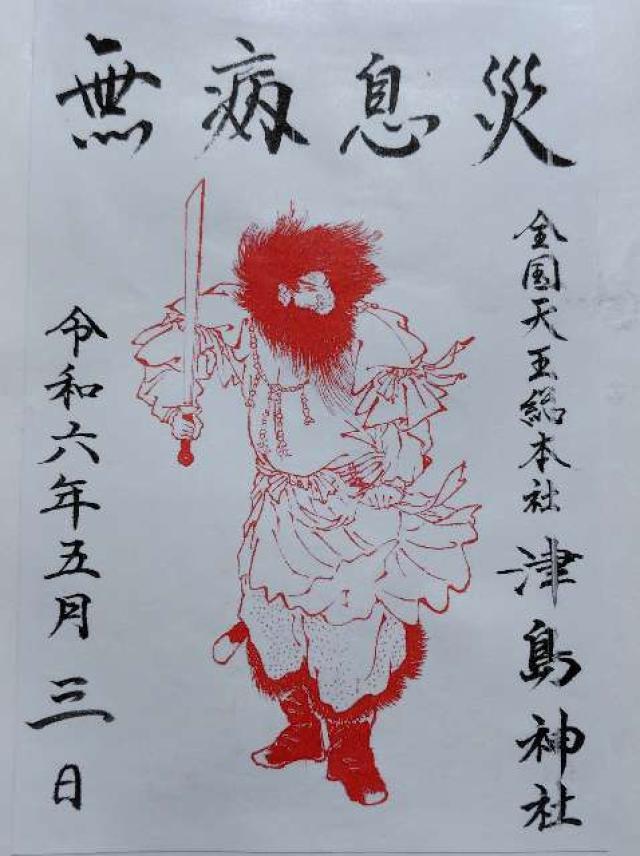 無病息災
全国天王総本社 津島神社
令和六年五月三日